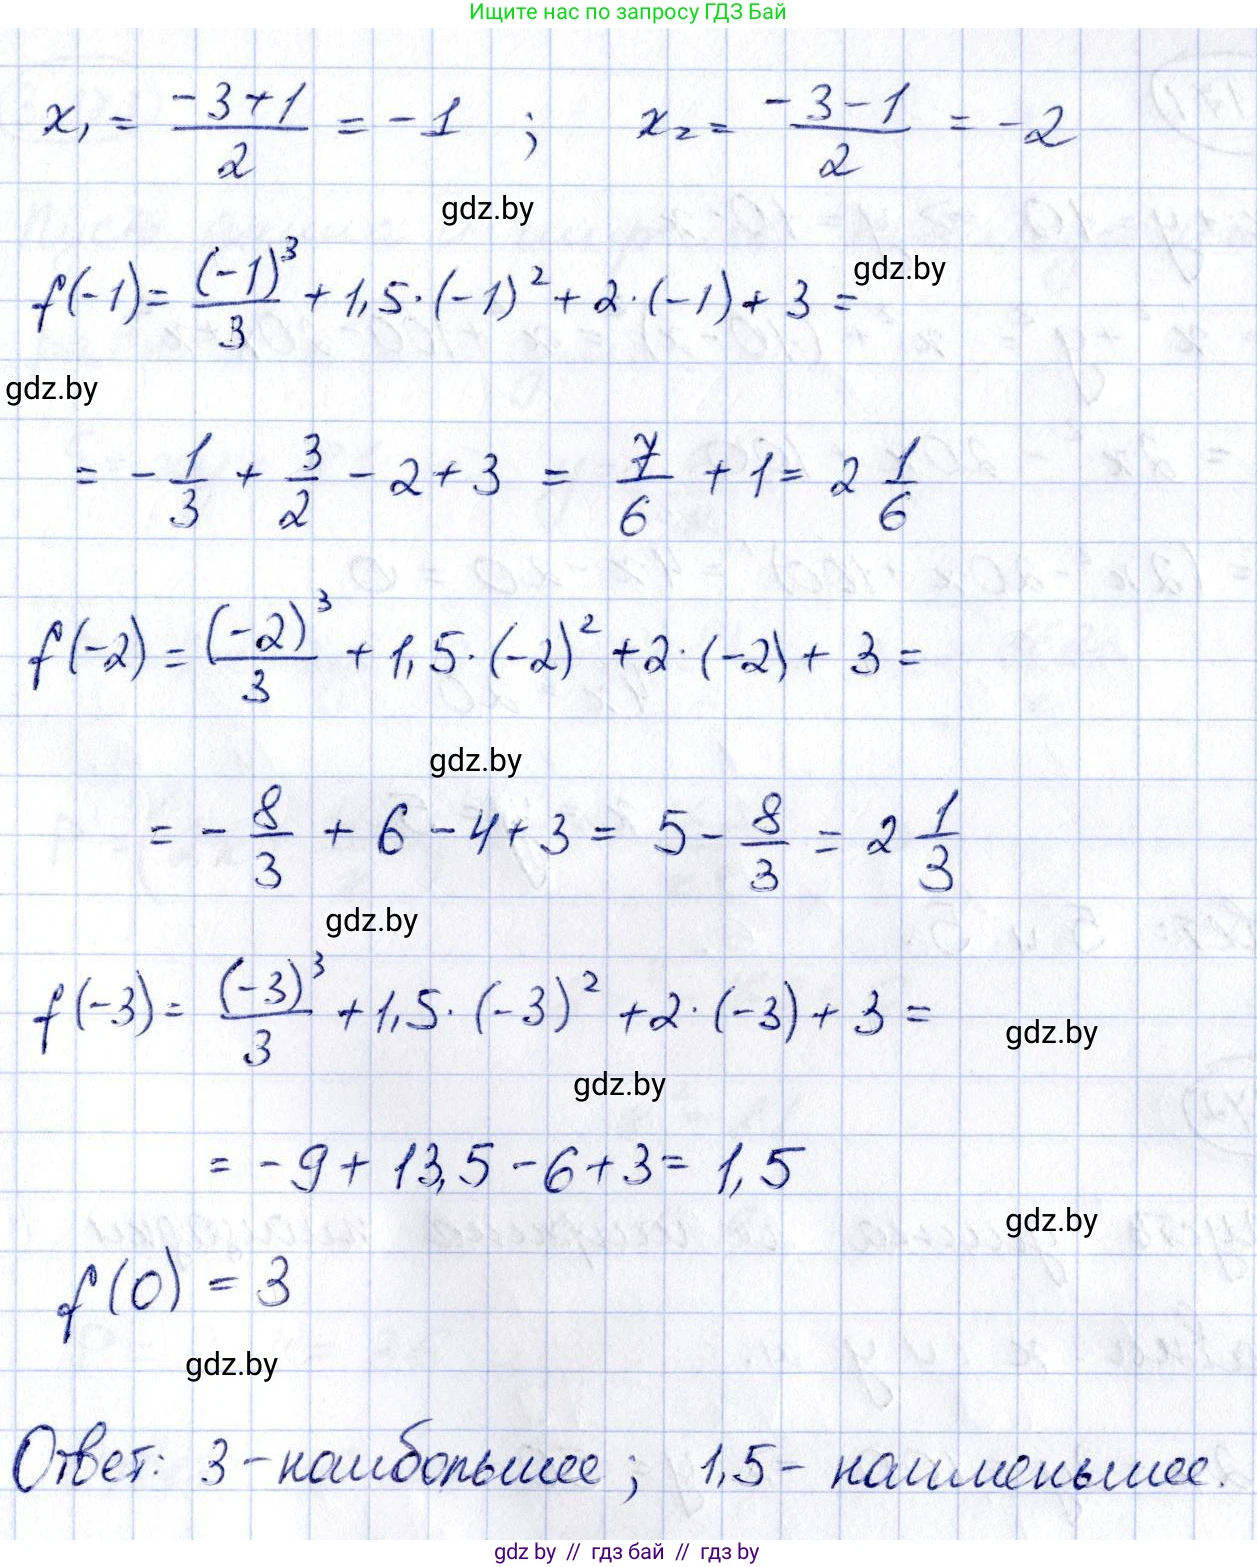 Ищите нас по запросу ГДЗ Бай
x₁ = (-3+1)/2 = -1 ; x₂ = (-3-1)/2 = -2
gdz.by
f(-1) = (-1)³/3 + 1,5·(-1)² + 2·(-1) + 3 =
gdz.by
gdz.by
= -1/3 + 3/2 - 2 + 3 = 7/6 + 1 = 2 1/6
f(-2) = (-2)³/3 + 1,5·(-2)² + 2·(-2) + 3 =
gdz.by
= -8/3 + 6 - 4 + 3 = 5 - 8/3 = 2 1/3
gdz.by
f(-3) = (-3)³/3 + 1,5·(-3)² + 2·(-3) + 3 =
gdz.by
gdz.by
= -9 + 13,5 - 6 + 3 = 1,5
gdz.by
f(0) = 3
gdz.by
Ответ: 3 - наибольшее; 1,5 - наименьшее.
gdz by // гдз бай // гдз by